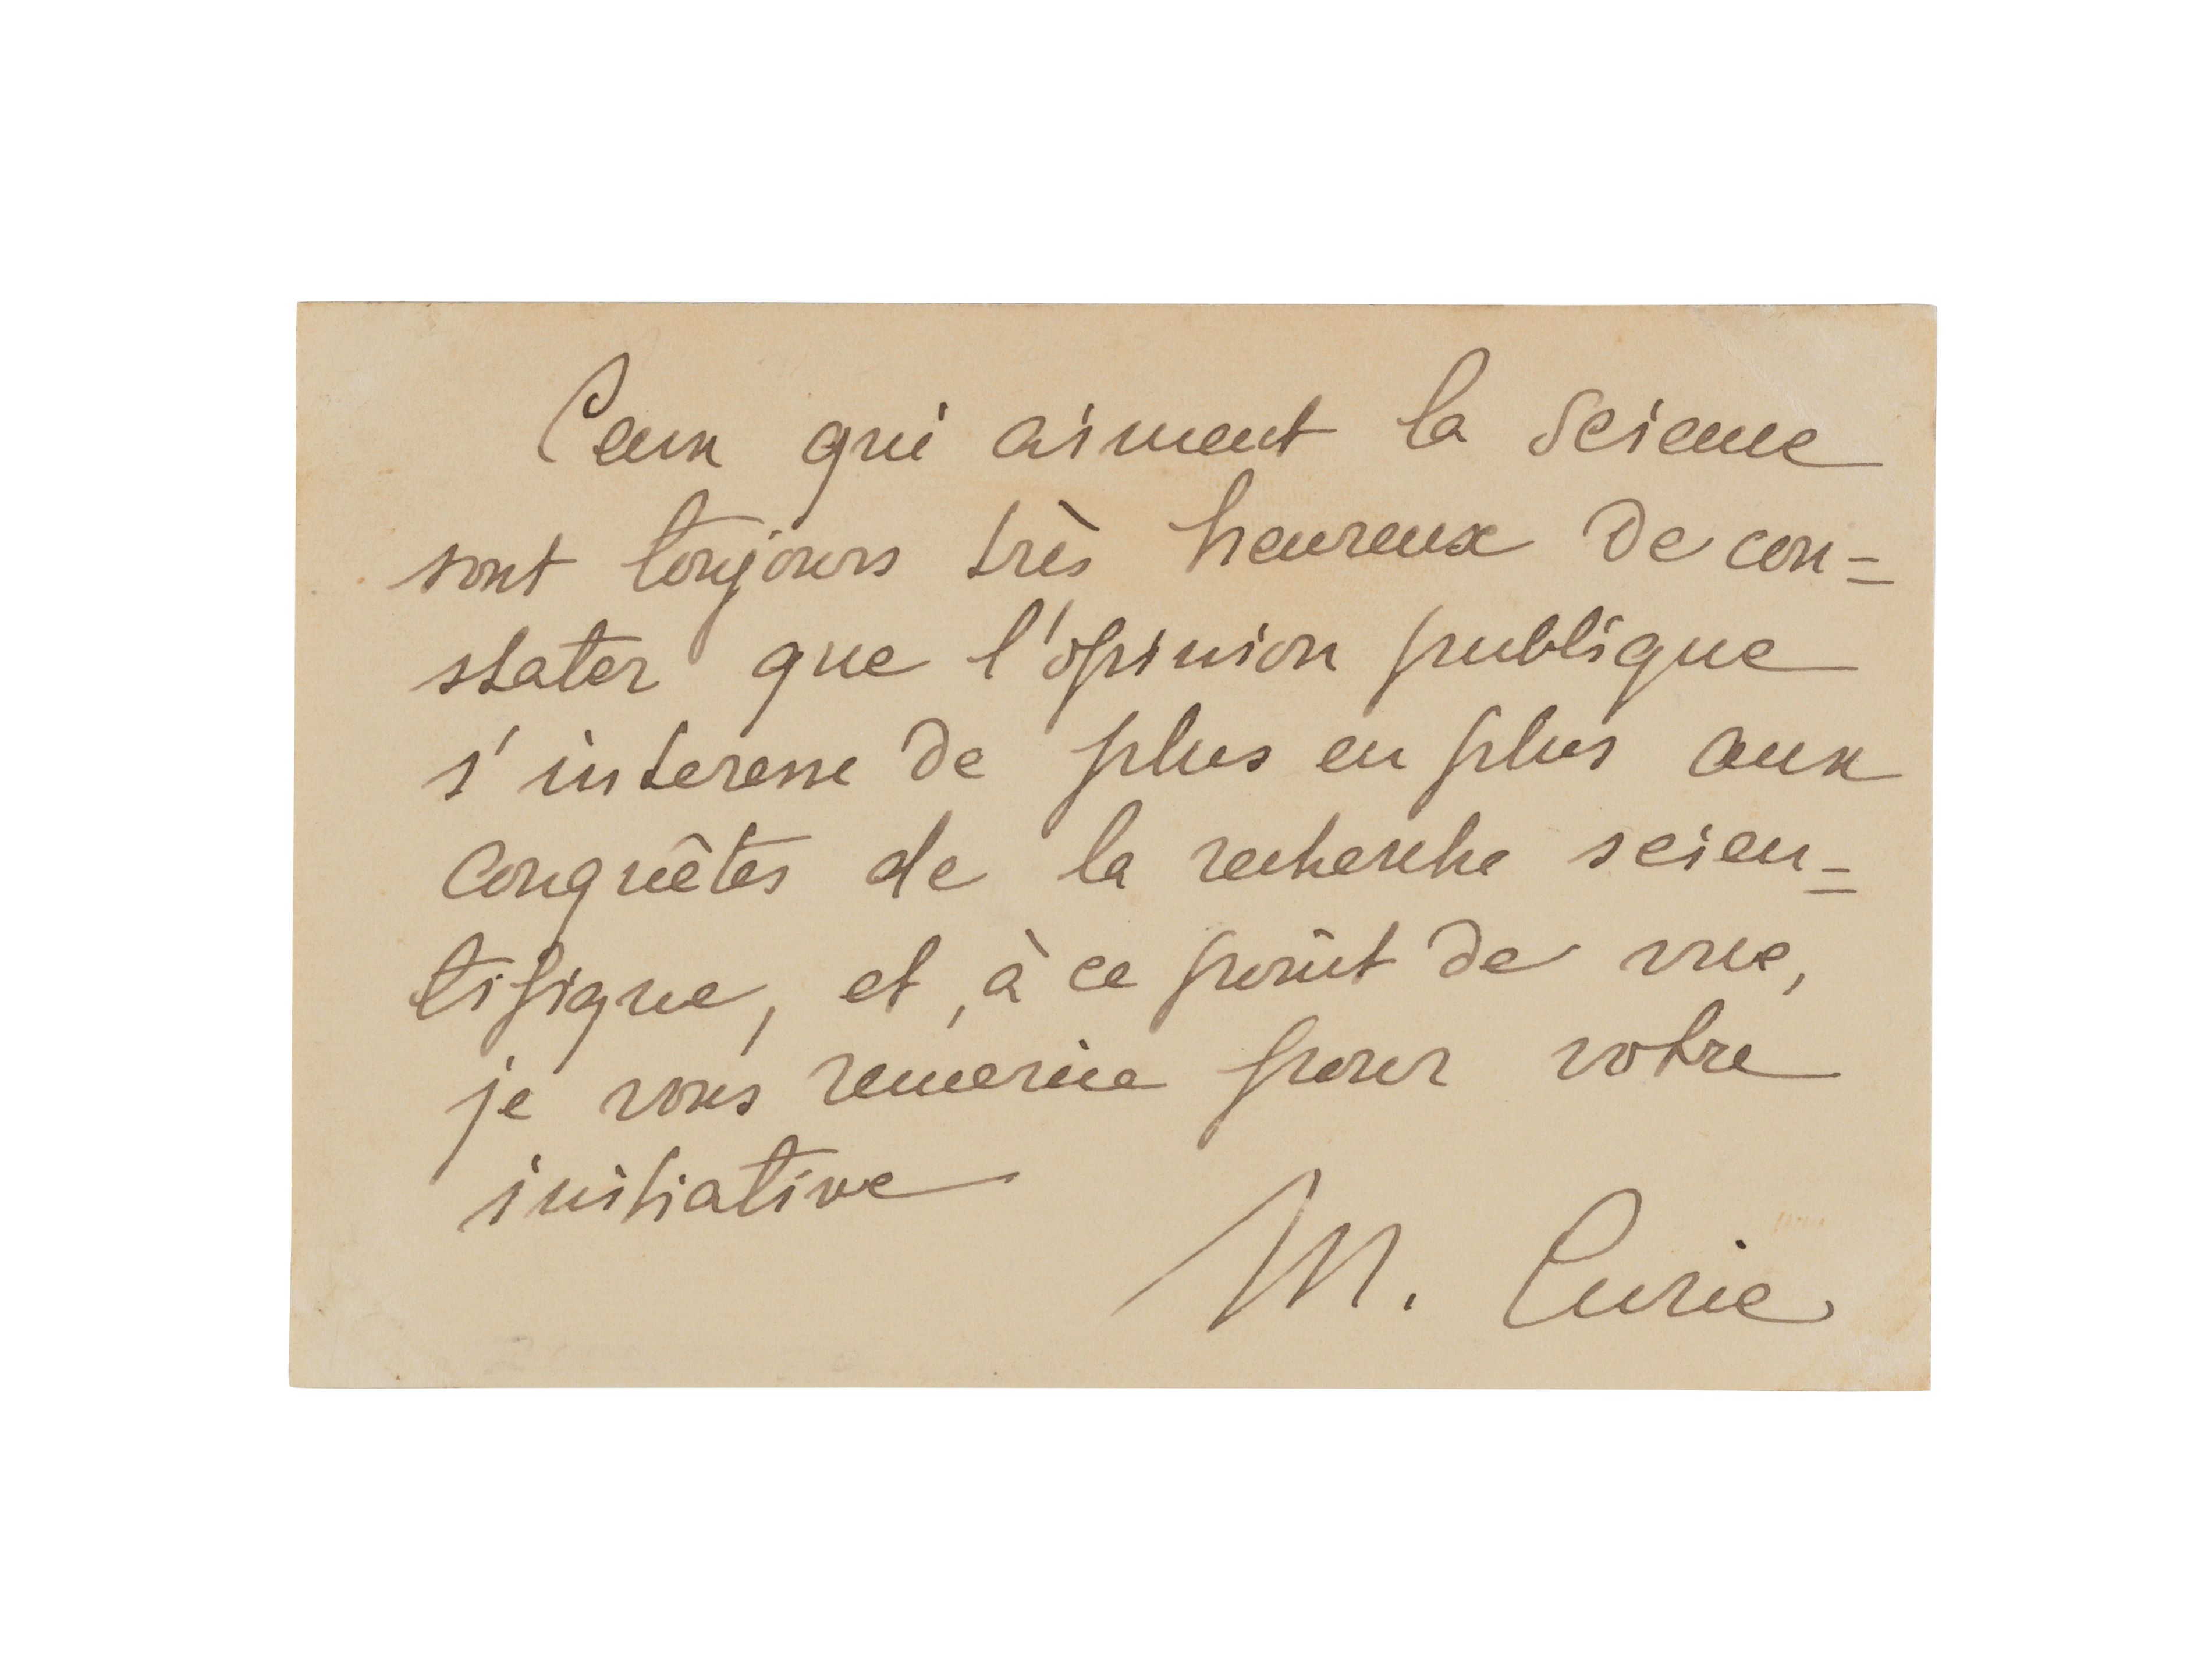 Ceux qui aiment la Science
sont toujours très heureux de con=
stater que l'opinion publique
s'interesse de plus en plus aux
conquêtes de la recherche scien=
tifique, et, à ce point de vue,
je vous remercie pour votre
initiative
M. Curie